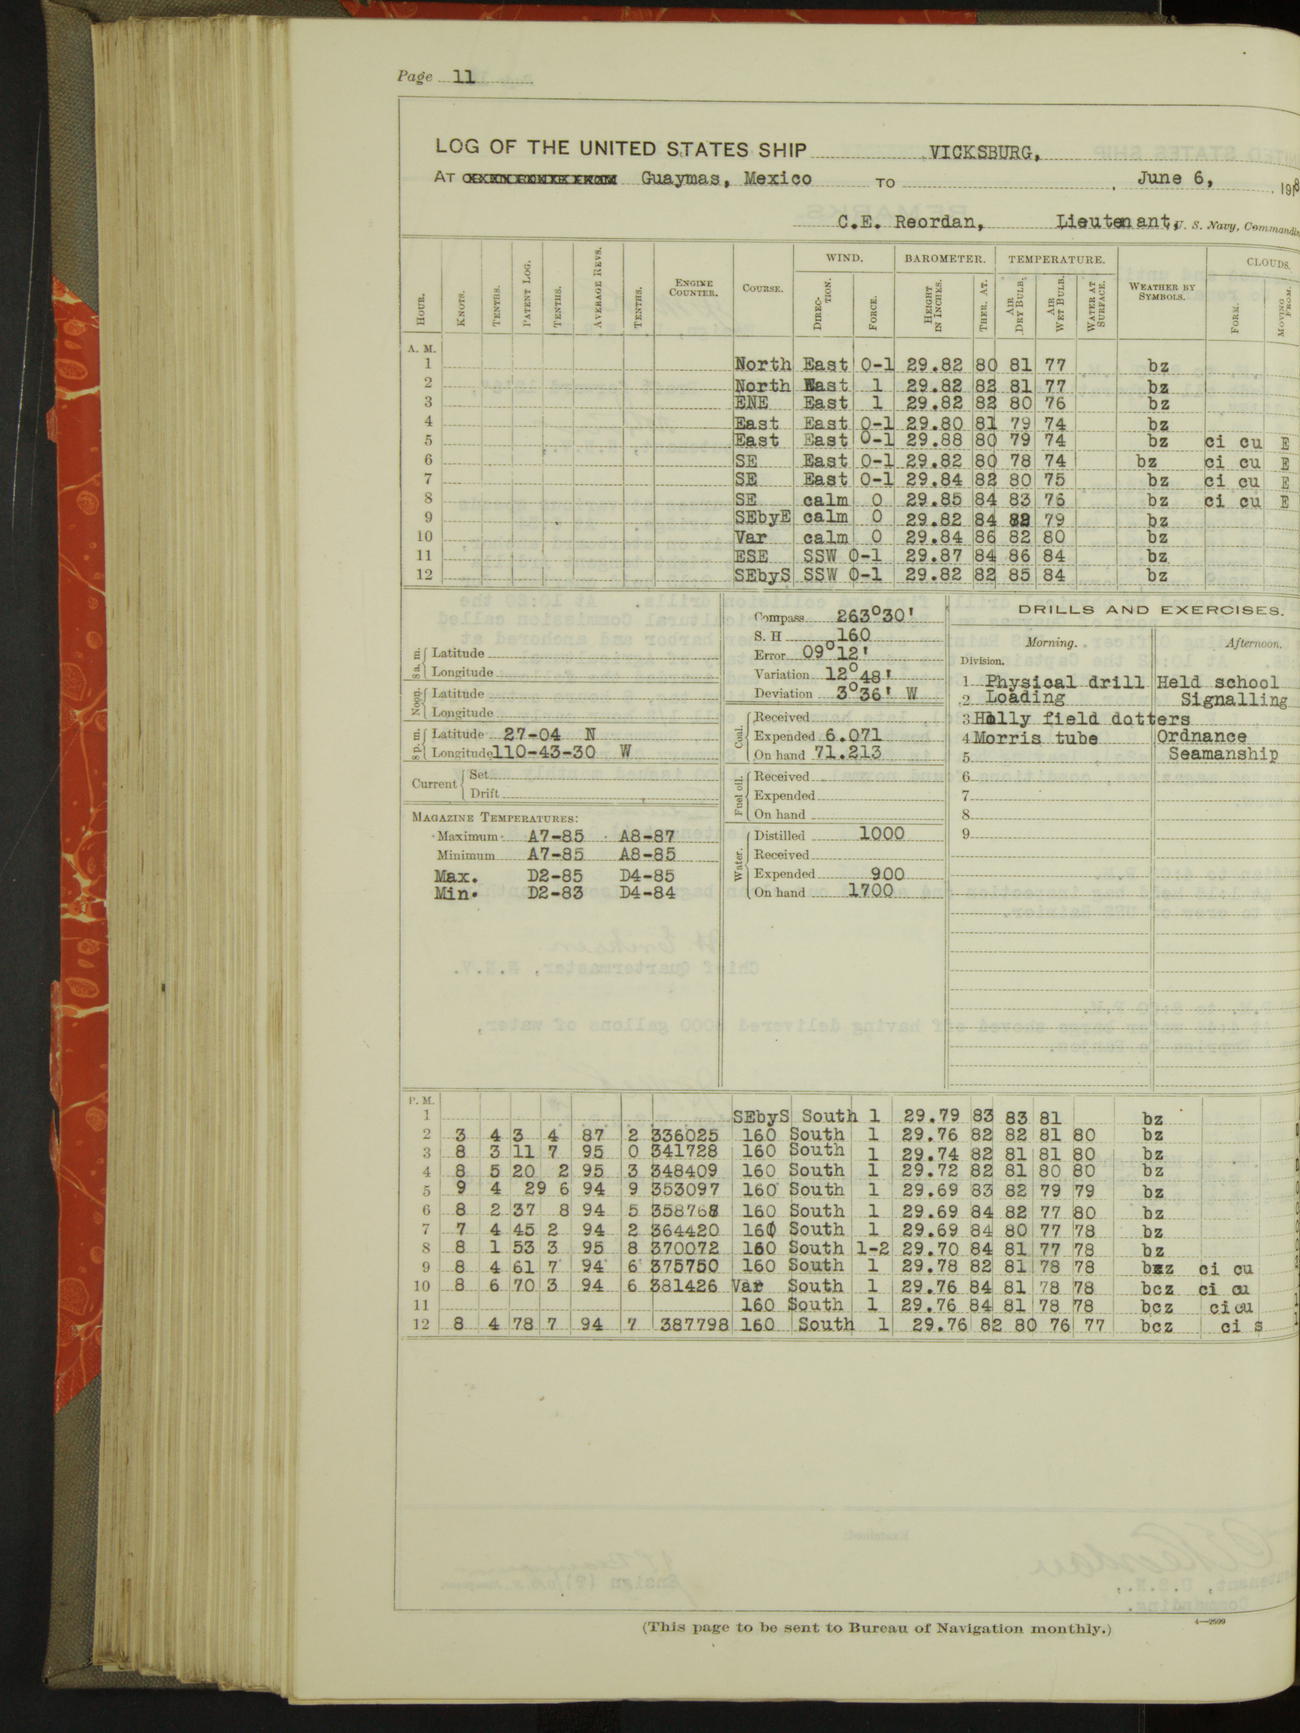 Page 11
LOG OF THE UNITED STATES SHIP VICKSBURG,
AT Guaymas, Mexico TO , June 6, 1918
C.E. Reordan, Lieutenant, U. S. Navy, Commandin
HOUR. KNOTS. TENTHS. PATENT LOG. TENTHS. AVERAGE REVS. TENTHS. ENGINE COUNTER. COURSE. WIND. DIRECTION. FORCE. BAROMETER. HEIGHT IN INCHES. THER. AT. TEMPERATURE. AIR DRY BULB. AIR WET BULB. WATER AT SURFACE. WEATHER BY SYMBOLS. CLOUDS. FORM. MOVING FROM.
A. M.
1 North East 0-1 29.82 80 81 77 bz
2 North East 1 29.82 82 81 77 bz
3 ENE East 1 29.82 82 80 76 bz
4 East East 0-1 29.80 81 79 74 bz
5 East East 0-1 29.88 80 79 74 bz ci cu E
6 SE East 0-1 29.82 80 78 74 bz ci cu E
7 SE East 0-1 29.84 82 80 75 bz ci cu E
8 SE calm 0 29.85 84 83 76 bz ci cu E
9 SEbyE calm 0 29.82 84 82 79 bz
10 Var calm 0 29.84 86 82 80 bz
11 ESE SSW 0-1 29.87 84 86 84 bz
12 SEbyS SSW 0-1 29.82 82 85 84 bz
8 a. m. Latitude
Longitude
Noon. Latitude
Longitude
8 p. m. Latitude 27-04 N
Longitude 110-43-30 W
Current Set
Drift
MAGAZINE TEMPERATURES:
Maximum A7-85 A8-87
Minimum A7-85 A8-85
Max. D2-85 D4-85
Min. D2-83 D4-84
Compass 263°30'
S. H 160
Error 09°12'
Variation 12°48'
Deviation 3°36' W
Coal. Received
Expended 6.071
On hand 71.213
Fuel oil. Received
Expended
On hand
Water. Distilled 1000
Received
Expended 900
On hand 1700
DRILLS AND EXERCISES.
Morning. Afternoon.
Division.
1 Physical drill Held school
2 Loading Signalling
3 Holly field dotters
4 Morris tube Ordnance
5 Seamanship
6
7
8
9
P. M.
1 SEbyS South 1 29.79 83 83 81 bz
2 3 4 3 4 87 2 336025 160 South 1 29.76 82 82 81 80 bz
3 8 3 11 7 95 0 341728 160 South 1 29.74 82 81 81 80 bz
4 8 5 20 2 95 3 348409 160 South 1 29.72 82 81 80 80 bz
5 9 4 29 6 94 9 353097 160 South 1 29.69 83 82 79 79 bz
6 8 2 37 8 94 5 358768 160 South 1 29.69 84 82 77 80 bz
7 7 4 45 2 94 2 364420 160 South 1 29.69 84 80 77 78 bz
8 8 1 53 3 95 8 370072 160 South 1-2 29.70 84 81 77 78 bz
9 8 4 61 7 94 6 375750 160 South 1 29.78 82 81 78 78 bz ci cu
10 8 6 70 3 94 6 381426 Var South 1 29.76 84 81 78 78 bcz ci cu
11 160 South 1 29.76 84 81 78 78 bcz ci cu
12 8 4 78 7 94 7 387798 160 South 1 29.76 82 80 76 77 bcz ci s
(This page to be sent to Bureau of Navigation monthly.)
4—2599